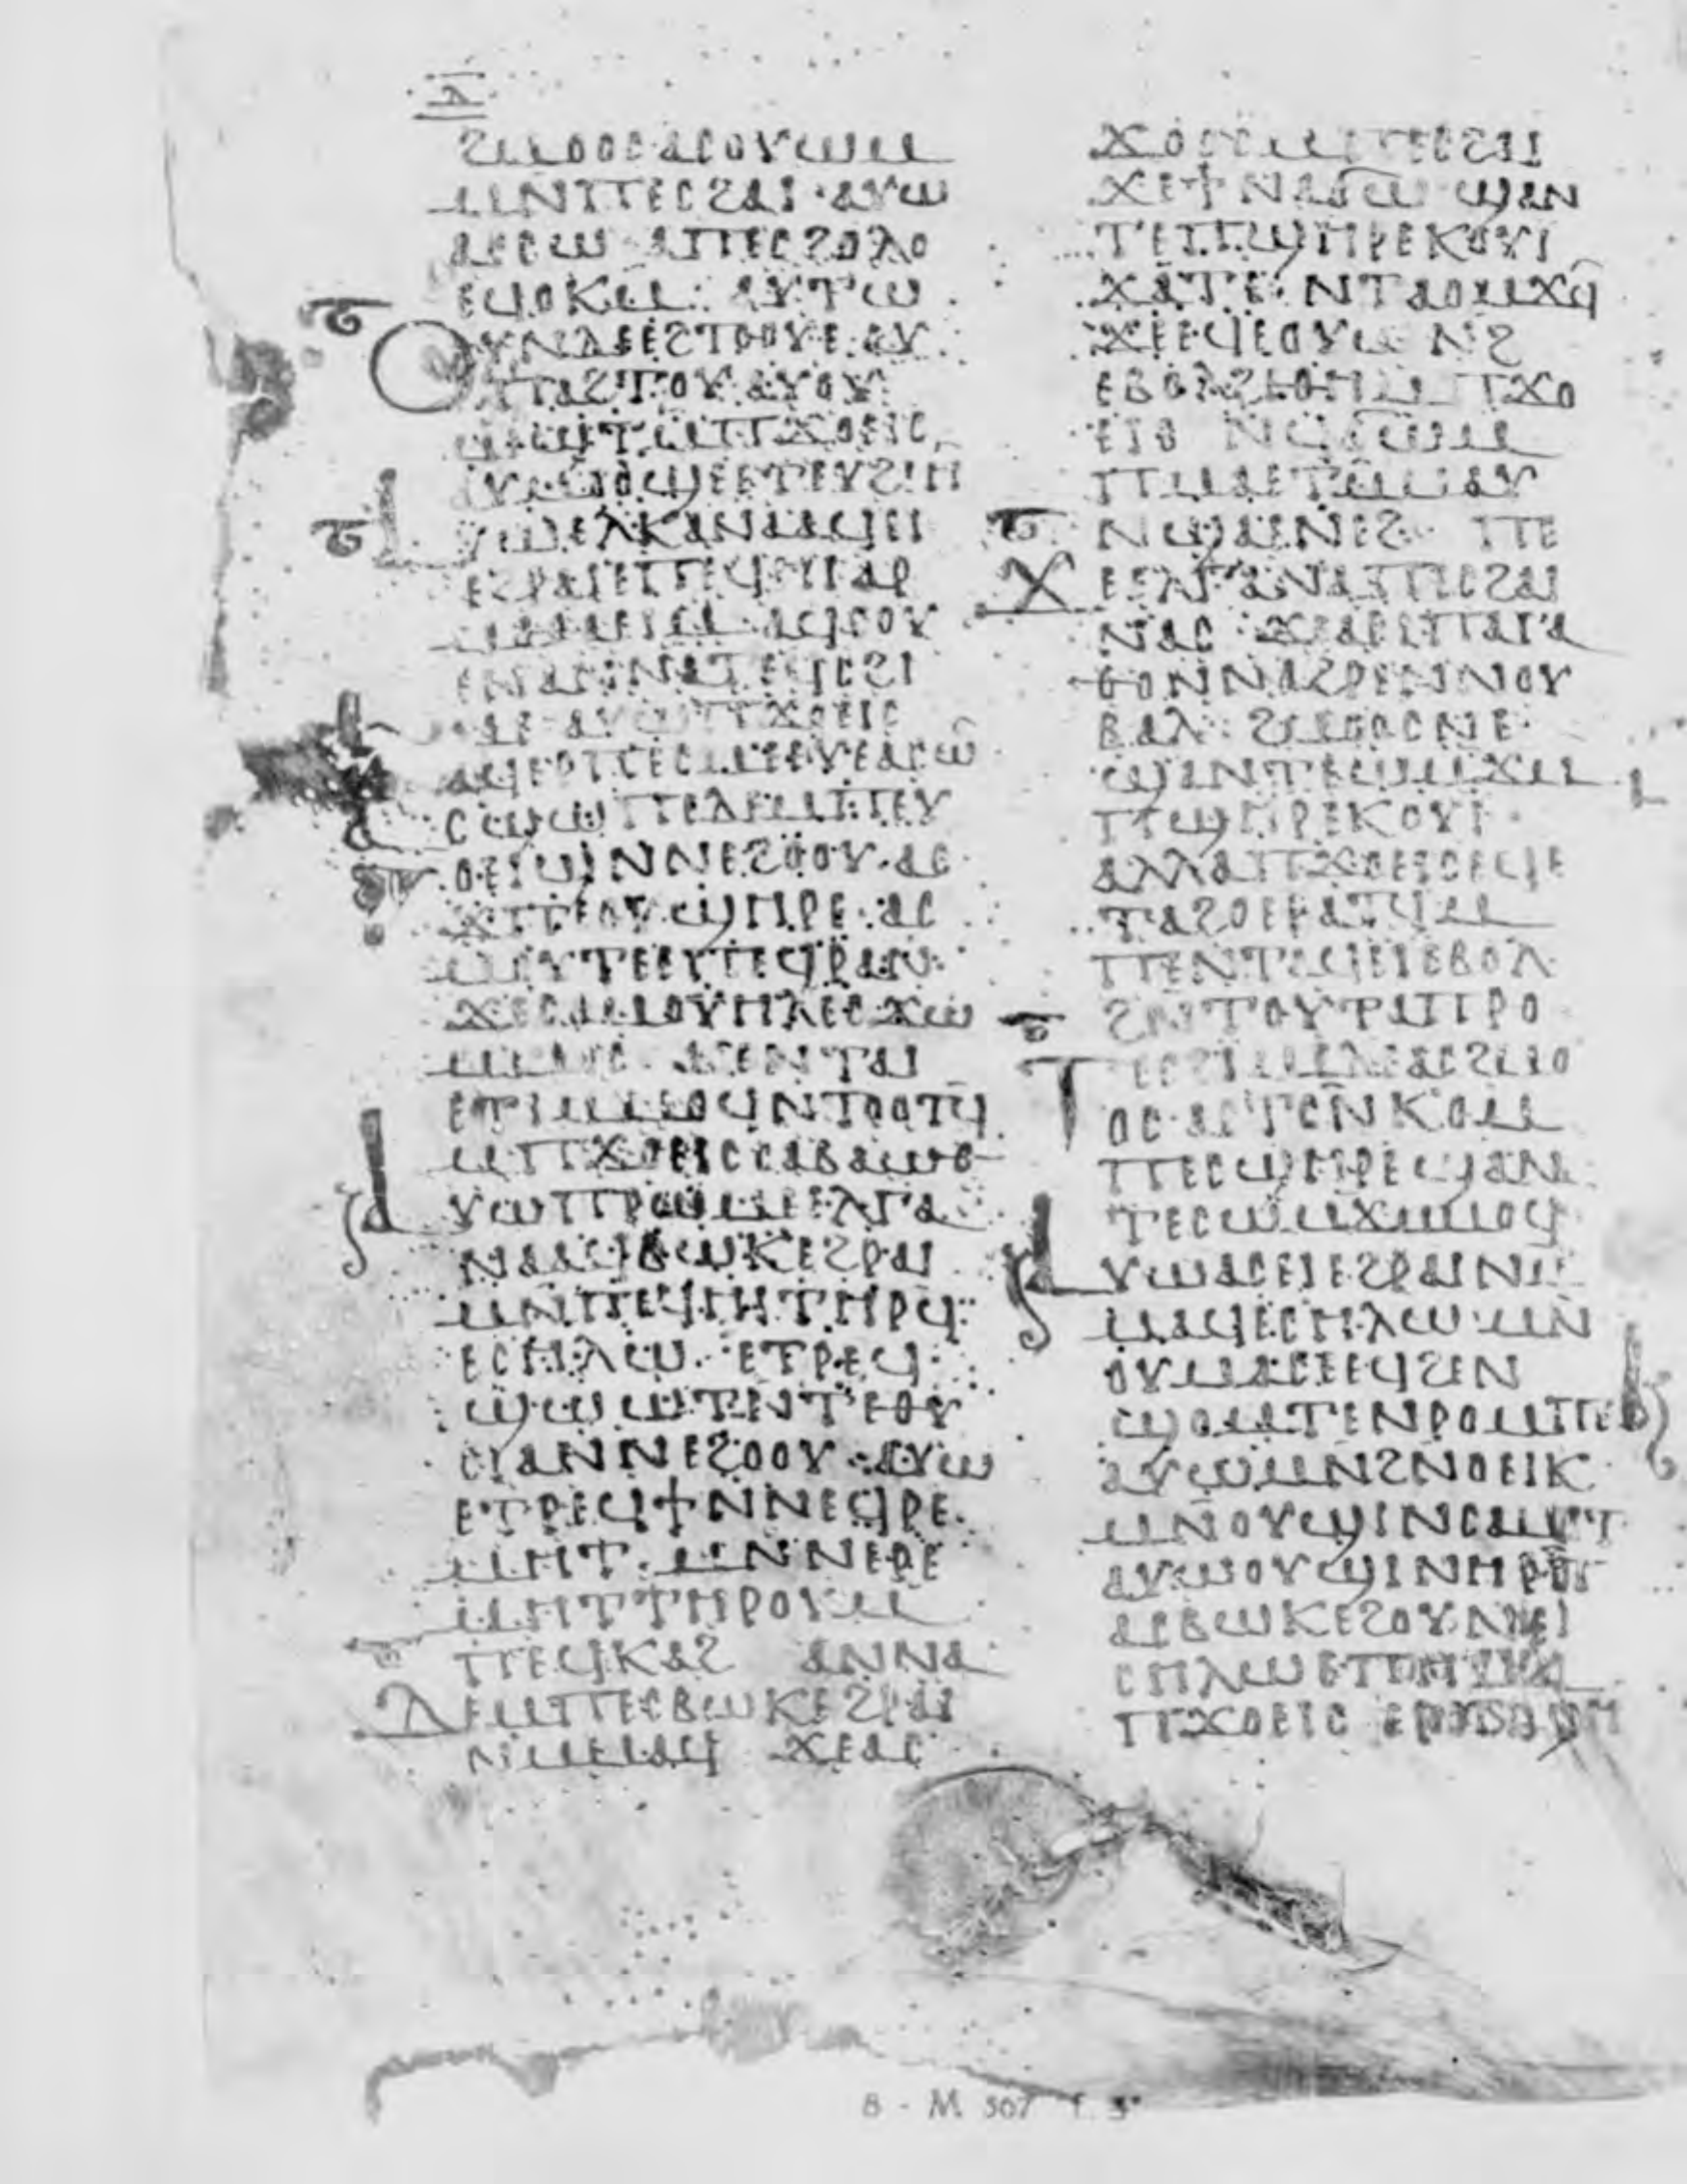 ⲗ
ϩⲙⲟⲟⲥ ⲁⲥⲟⲩⲱⲙ
ⲙⲛⲡⲉⲥϩⲁⲓ · ⲁⲩⲱ
ⲁⲥⲥⲱ ⲁⲡⲉⲥϩⲟⲗⲟ
ⲉϥⲟⲕⲙ ⲁⲩⲧⲱ
ⲟⲩⲛⲇⲉⲉϩⲧⲟⲟⲩⲉ ⲁⲩ
ⲡⲁϩⲧⲟⲩ ⲁⲩⲟⲩ
ⲱϣⲧⲙⲡϫⲟⲉⲓⲥ
ⲁⲩⲙⲟⲟϣⲉⲉⲧⲉⲩϩⲓⲏ
ⲁⲩⲱⲉⲗⲕⲁⲛⲁⲁϥⲉⲓ
ⲉϩⲣⲁⲓⲉⲡⲉϥⲏⲓⲁⲣ
ⲙⲁⲑⲁⲓⲙ ⲁϥⲥⲟⲩ
ⲉⲛⲁⲛⲛⲁⲧⲉϥⲥϩⲓ
ⲙⲉ ⲁⲩⲱⲡϫⲟⲉⲓⲥ
ⲁϥⲉⲣⲡⲉⲥⲙⲉⲉⲩⲉⲁⲥⲱ
ⲁⲥϣⲱⲡⲉⲇⲉⲙⲡⲉⲩ
ⲟⲉⲓϣⲛⲛⲉϩⲟⲟⲩ · ⲁⲥ
ϫⲡⲉⲟⲩϣⲏⲣⲉ ⲁⲥ
ⲙⲟⲩⲧⲉⲉⲡⲉϥⲣⲁⲛ
ϫⲉⲥⲁⲙⲟⲩⲏⲗⲉⲥϫⲱ
ⲙⲙⲟⲥ ϫⲉⲛⲧⲁⲓ
ⲉⲧⲓⲙⲙⲟϥⲛⲧⲟⲟⲧϥ
ⲙⲡϫⲟⲉⲓⲥⲥⲁⲃⲁⲱⲑ
ⲁⲩⲱⲡⲣⲱⲙⲉⲉⲗⲅⲁ
ⲛⲁⲁϥⲃⲱⲕⲉϩⲣⲁⲓ
ⲙⲛⲡⲉϥⲏⲓⲧⲏⲣϥ
ⲉⲥⲏⲗⲱ ⲉⲧⲣⲉϥ
ϣⲱⲱⲧⲛⲧⲉⲟⲩ
ⲥⲓⲁⲛⲛⲉϩⲟⲟⲩ ⲁⲩⲱ
ⲉⲧⲣⲉϥϯⲛⲛⲉϥⲣⲉ
ⲙⲏⲧ ⲙⲛⲛⲉⲣⲉ
ⲙⲏⲧⲧⲏⲣⲟⲩⲙ
ⲡⲉϥⲕⲁϩ ⲁⲛⲛⲁ
ⲇⲉⲙⲡⲉⲥⲃⲱⲕⲉϩⲣⲁⲓ
ⲛⲙⲙⲁϥ ϫⲉⲁⲥ
ϫⲟⲟⲥⲙⲡⲉⲥϩⲁⲓ
ϫⲉϯⲛⲁϭⲱ ϣⲁⲛ
ⲧⲉⲡϣⲏⲣⲉⲕⲟⲩⲓ
ϫⲁⲧⲉ ⲛⲧⲁⲟⲙϫϥ
ϫⲉⲉϥⲉⲟⲩⲱⲛϩ
ⲉⲃⲟⲗϩⲓⲑⲏⲙⲡϫⲟ
ⲉⲓⲥ ⲛϥϭⲱϩⲙ
ⲡⲙⲁⲉⲧⲙⲙⲁⲩ
ⲛϣⲁⲉⲛⲉϩ ⲡⲉ
ϫⲉⲉⲗⲅⲁⲛⲁⲡⲉⲥϩⲁⲓ
ⲛⲁⲥ ϫⲉⲁⲣⲓⲡⲁⲅⲁ
ⲑⲟⲛⲛⲁϩⲣⲉⲛⲛⲟⲩ
ⲃⲁⲗ ϩⲙⲟⲟⲥⲛⲉ
ϣⲁⲛⲧⲉⲱⲙϫⲙ
ⲡϣⲏⲣⲉⲕⲟⲩⲓ
ⲁⲗⲗⲁⲡϫⲟⲉⲓⲥⲉϥⲉ
ⲧⲁϩⲟⲉⲣⲁⲧϥⲙ
ⲡⲉⲛⲧⲁϥⲉⲓⲉⲃⲟⲗ
ϩⲛⲧⲟⲩⲧⲁⲡⲣⲟ
ⲧⲉⲥϩⲓⲙⲉⲇⲉⲁⲥϩⲙⲟ
ⲟⲥ ⲁⲥⲧⲥⲛⲕⲟⲙ
ⲡⲉⲥϣⲏⲣⲉϣⲁⲛ
ⲧⲉⲥⲱⲙϫⲙⲙⲟϥ
ⲁⲩⲱⲁⲥⲉⲓⲉϩⲣⲁⲓⲛⲙ
ⲙⲁϥⲉⲥⲏⲗⲱ ⲙⲛ
ⲟⲩⲙⲁⲥⲉⲉϥϩⲛ
ϣⲟⲙⲧⲉⲛⲣⲟⲙⲡⲉ
ⲁⲩⲱⲙⲛϩⲛⲟⲉⲓⲕ
ⲙⲛⲟⲩϣⲓⲛⲥⲁⲙⲓⲧ
ⲁⲩⲱⲟⲩϣⲓⲛⲏⲣⲡ
ⲁⲥⲃⲱⲕⲉϩⲟⲩⲛⲉ
ⲥⲏⲗⲱⲉⲡⲏⲓⲙ
ⲡϫⲟⲉⲓⲥ
8 - M 567 f. 3ʳ